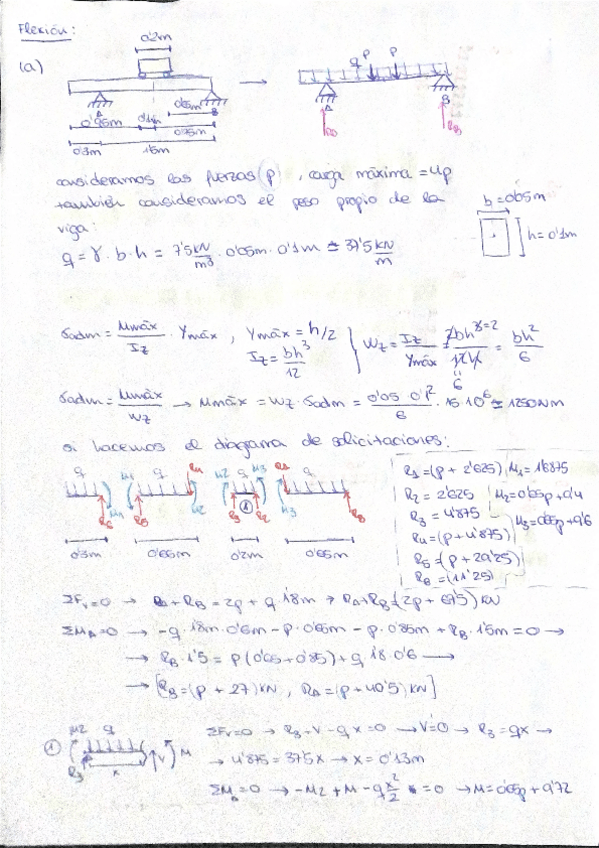 Flexión:
(a)
0'2m
0'65m
0'85m
0'1m
0'75m
0'3m
1'5m
q P P
A
B
RA
RB
consideramos las fuerzas (p), carga máxima = 4p
también consideramos el peso propio de la
viga:
b = 0'05m
h = 0'1m
q = γ · b · h = 7'5 kN/m³ · 0'05m · 0'1m ≃ 37'5 kN/m
σadm = Mmáx/Iz · Ymáx , Ymáx = h/2
Iz = bh³/12
Wz = Iz/Ymáx = = bh²/6
σadm = Mmáx/Wz → Mmáx = Wz · σadm = 0'05 · 0'1²/6 · 15·10⁶ ≃ 1250 Nm
si hacemos el diagrama de solicitaciones:
q M1 q R4 M2 q M3 R1 q
R6 M1 R5 M2 R3 R2 M3 RB
①
0'3m 0'65m 0'2m 0'65m
R1 = (p + 2'625) M1 = 1'6875
R2 = 2'625 M2 = 0'65p + 9'4
R3 = 4'875 M3 = 0'65p + 9'6
R4 = (p + 4'875)
R5 = (p + 29'25)
R6 = (11'25)
ΣFv = 0 → RA + RB = 2p + q · 1'8m → RA + RB = (2p + 67'5) kN
ΣMA = 0 → -q · 1'8m · 0'6m - p · 0'65m - p · 0'85m + RB · 1'5m = 0 →
→ RB · 1'5 = p(0'65 + 0'85) + q · 1'8 · 0'6 →
→ [RB = (p + 27) kN , RA = (p + 40'5) kN]
① M2 q V M
R3 x
ΣFv = 0 → R3 + V - qx = 0 → V = 0 → R3 = qx →
→ 4'875 = 37'5x → x = 0'13m
ΣM = 0 → -M2 + M - q x²/2 = 0 → M = 0'65p + 9'72